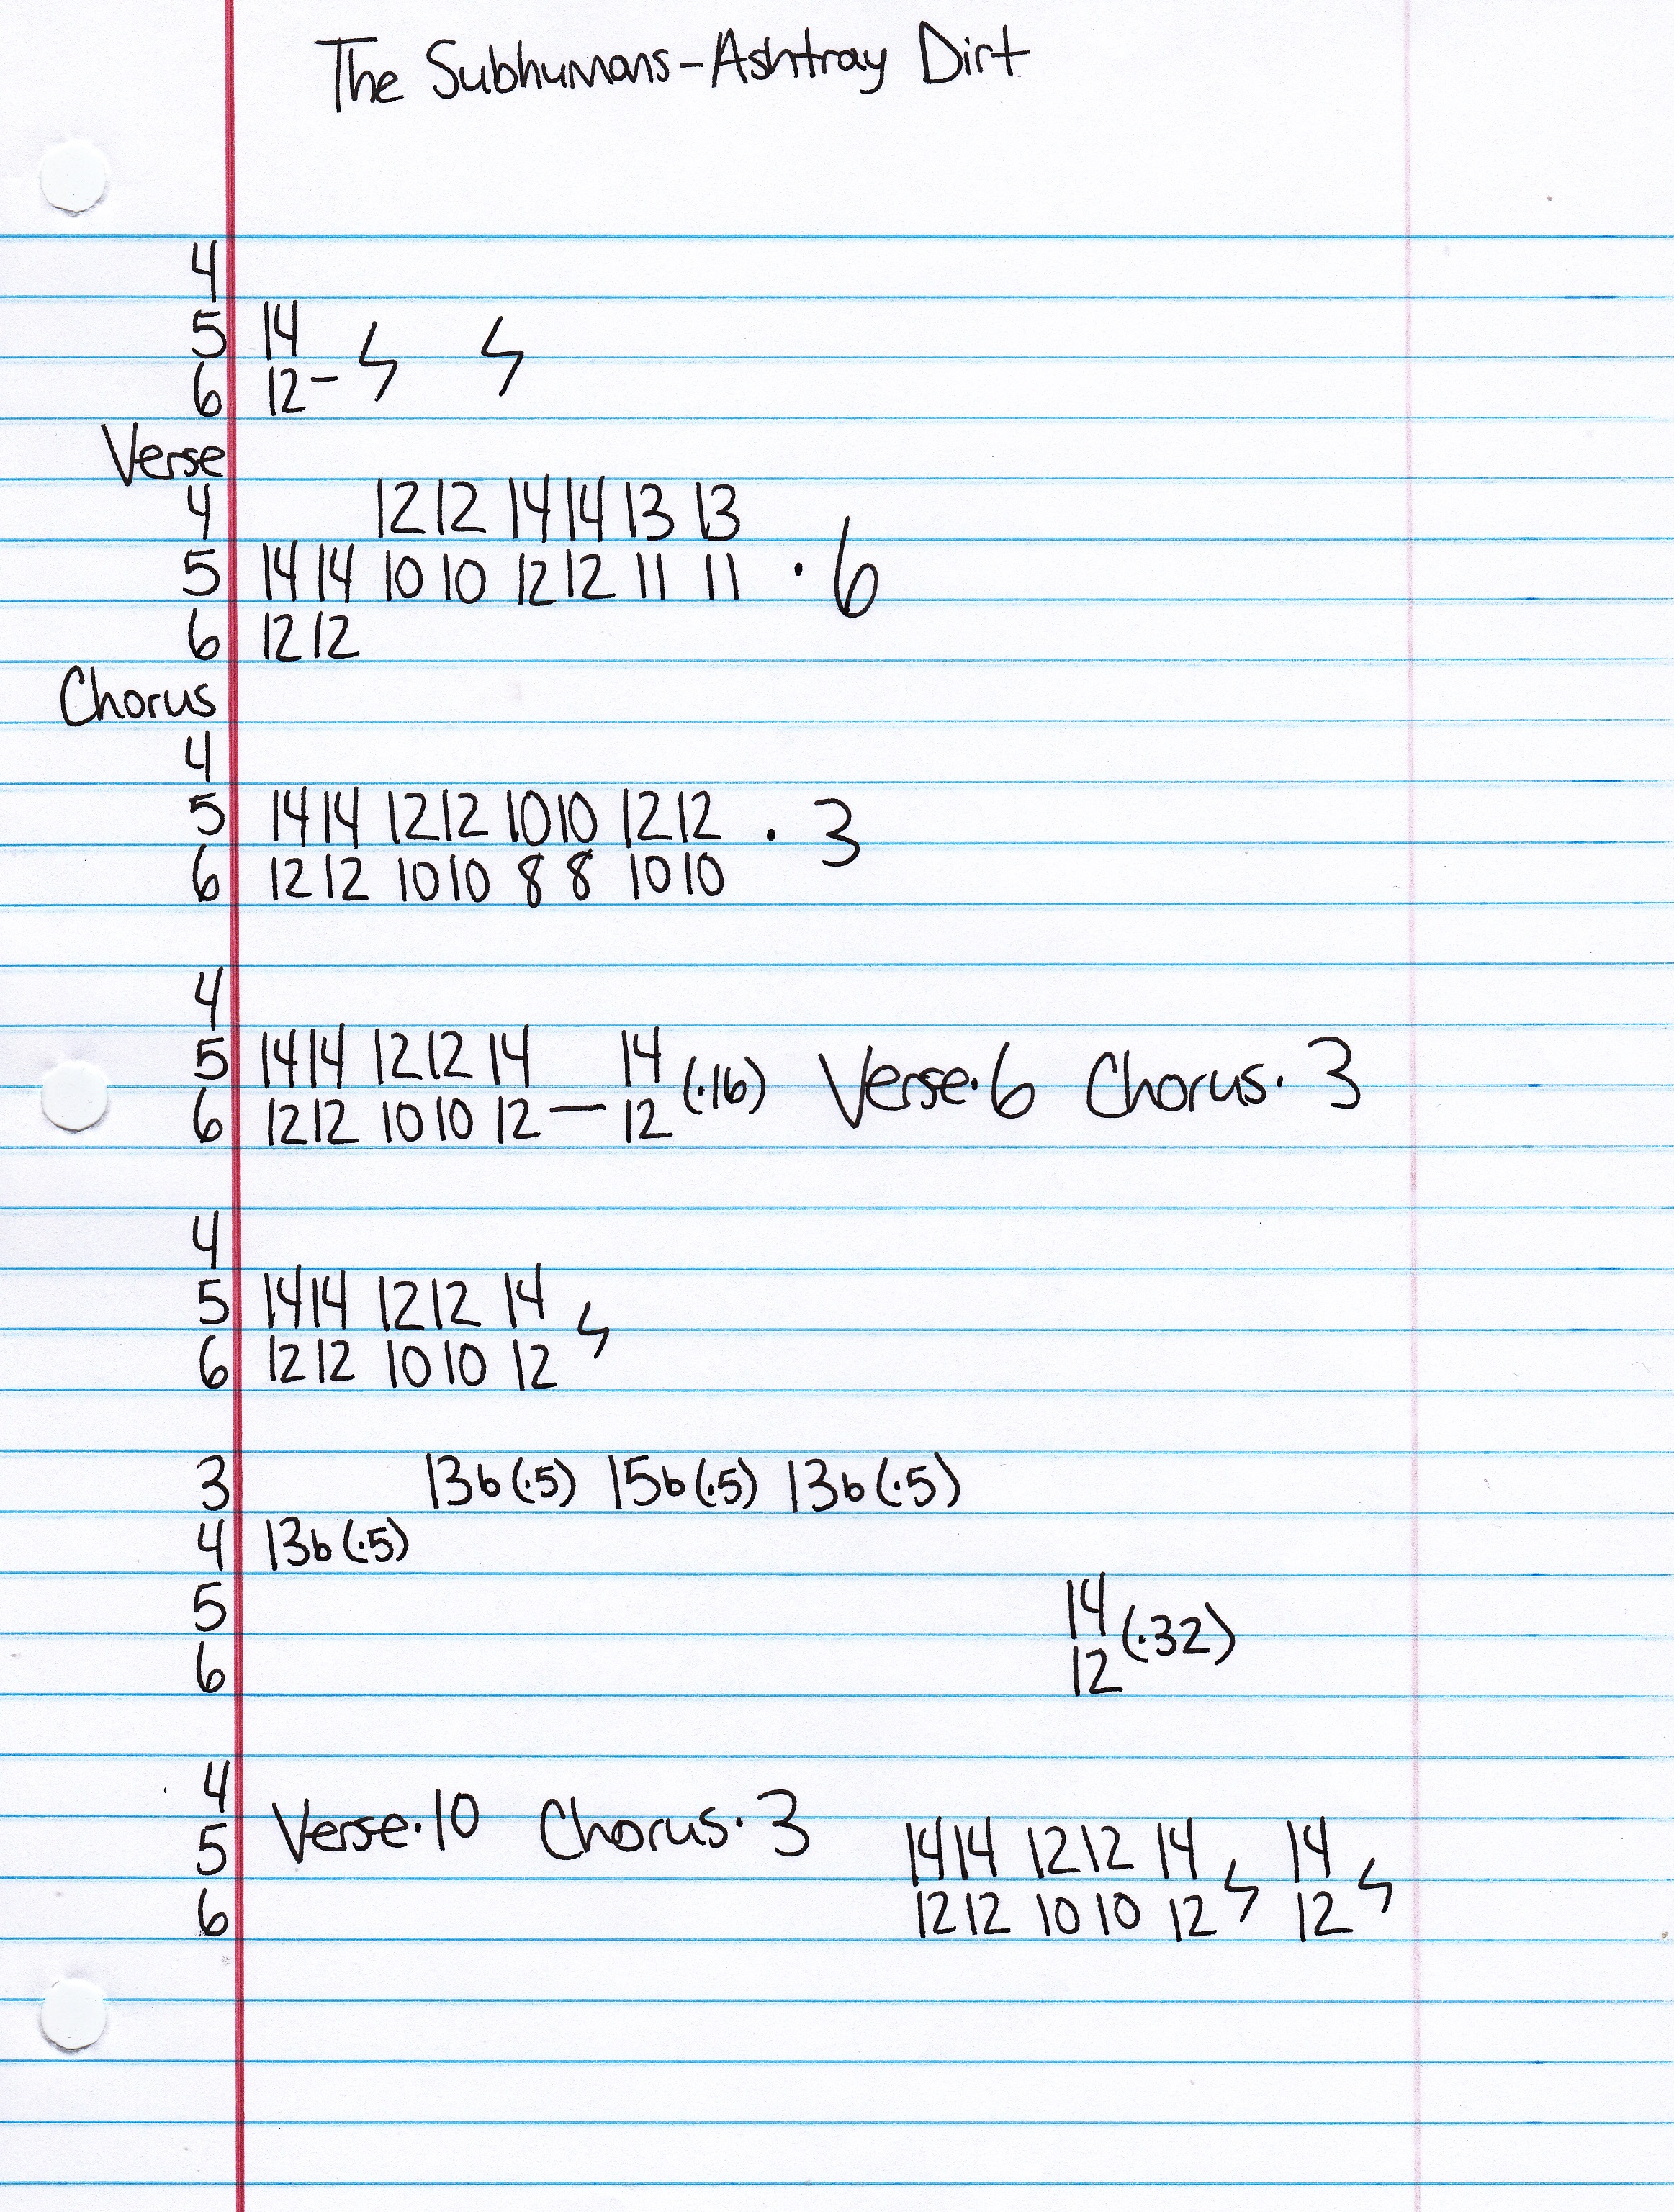 The Subhumans-Ashtray Dirt
4
5 14
6 12- ϟ ϟ
Verse
4 12 12 14 14 13 13
5 14 14 10 10 12 12 11 11 · 6
6 12 12
Chorus
4
5 14 14 12 12 10 10 12 12 · 3
6 12 12 10 10 8 8 10 10
4
5 14 14 12 12 14 14 (·16) Verse·6 Chorus·3
6 12 12 10 10 12 — 12
4
5 14 14 12 12 14 ϟ
6 12 12 10 10 12
3 13b(·5) 15b(·5) 13b(·5)
4 13b(·5)
5 14 (·32)
6 12
4 Verse·10 Chorus·3
5 14 14 12 12 14 ϟ 14 ϟ
6 12 12 10 10 12 12